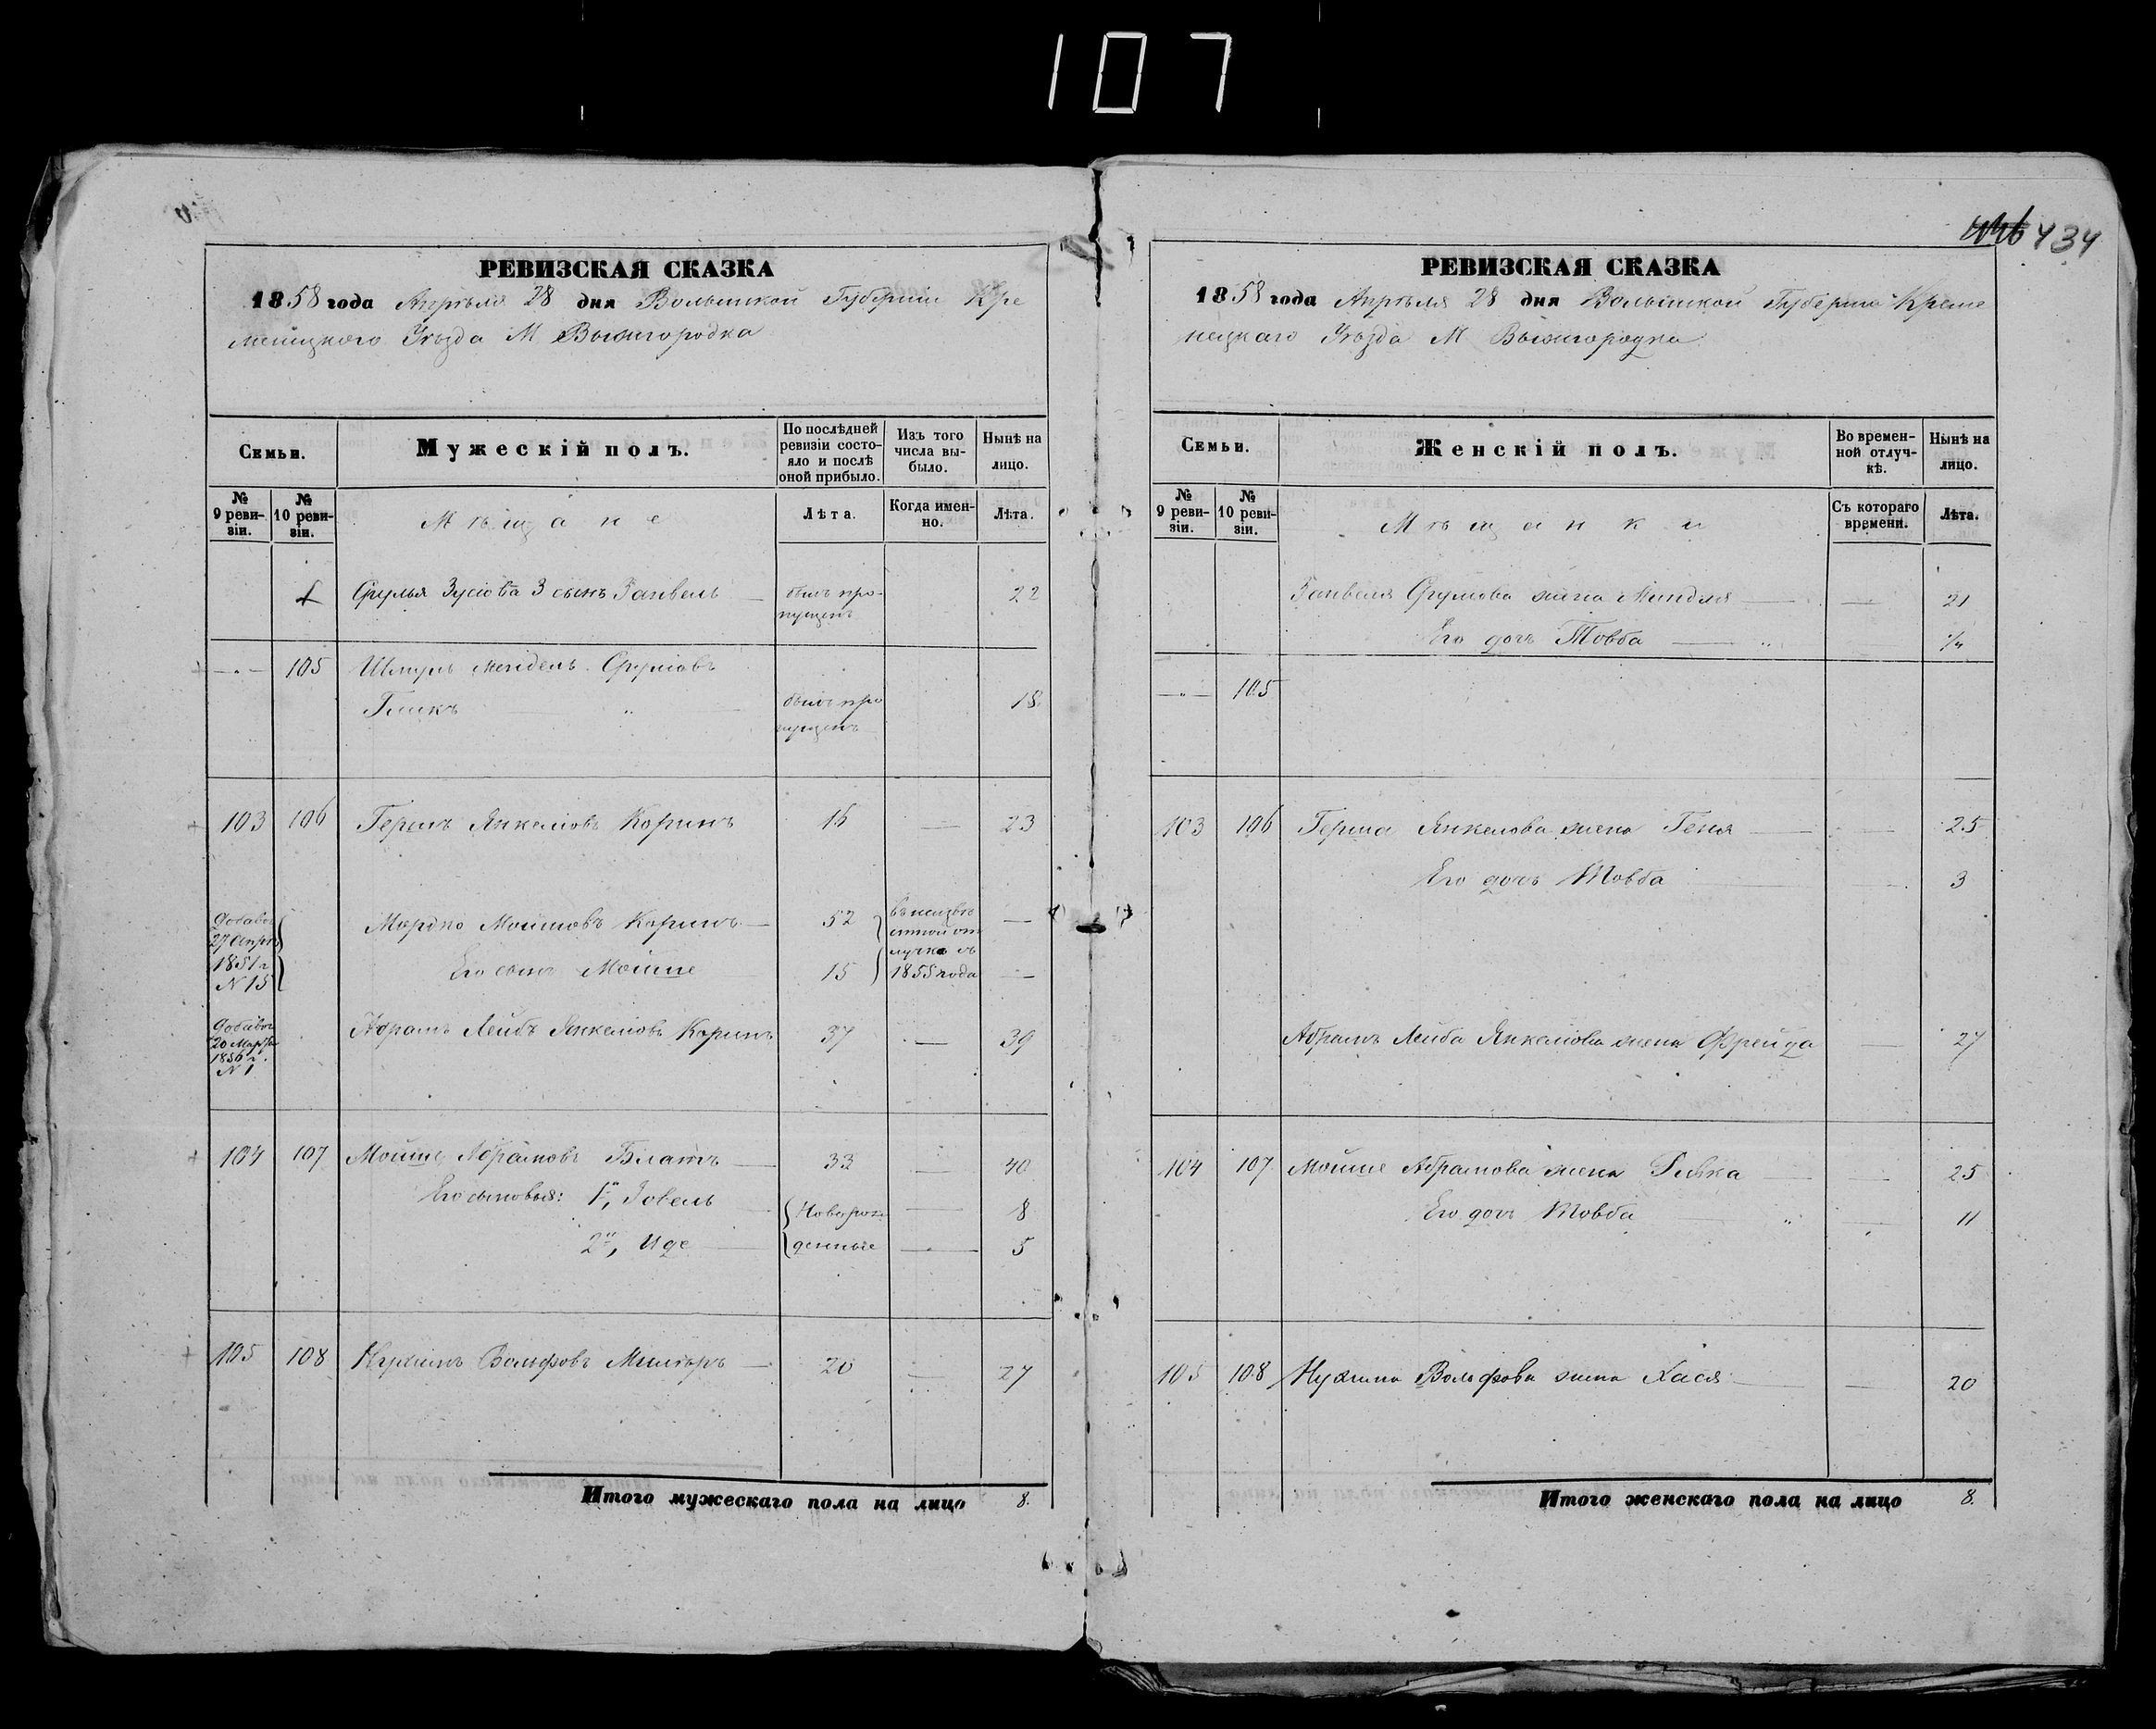 107
434
РЕВИЗСКАЯ СКАЗКА
1858 года Апрѣля 28 дня Волынской Губерніи Кре
менецкого Уѣзда М Вышгородка
Семьи.
Мужескій полъ.
По послѣдней ревизіи состояло и послѣ оной прибыло.
Изъ того числа выбыло.
Нынѣ на лицо.
№ 9 ревизіи.
№ 10 ревизіи.
Мѣщане
Лѣта.
Когда именно.
Лѣта.
Срулья Зусіова 3 сынъ Занвель — былъ пропущенъ 22
— " — 105 Шмуль Мендель Сруліовъ
былъ пропущенъ 18
103 106 Гершъ Янкеліовъ Коринъ 16 — 23
27 Апрѣ 1851 г N 15
Мордко Мошковъ Коринъ — 52 —
Его сынъ Мойше 15 —
въ неизвѣстной отлучкѣ съ 1855 года
20 Марта 1856 г. N 1
Абрамъ Лейбъ Янкеліовъ Коринъ 37 — 39
104 107 Мойше Абрамовъ Блатъ — 33 — 40
Его сыновья: 1й, Зовель — Новорож — 8
2й, Иде — денные — 5
105 108 Нухимъ Вольфовъ — 20 — 27
Итого мужескаго пола на лицо 8.
РЕВИЗСКАЯ СКАЗКА
1858 года Апрѣля 28 дня Волынской Губерніи Креме
нецкаго Уѣзда М Вышгородка
Семьи.
Женскій полъ.
Во временной отлучкѣ.
Нынѣ на лицо.
№ 9 ревизіи.
№ 10 ревизіи.
Мѣщанки
Съ котораго времени.
Лѣта.
Занвеля Сруліова жена Миндля — — 21
Его дочь Товба — "
— " — 105
103 106 Герша Янкелова жена Геня — — 25
Его дочь Товба — 3
Абрамъ Лейба Янкеліова жена Фрейда — 27
104 107 Мойше Абрамова жена Ривка — — 25
Его дочь Товба " — 11
105 108 Нухима Вольфова жена Хася — — 20
Итого женскаго пола на лицо 8.